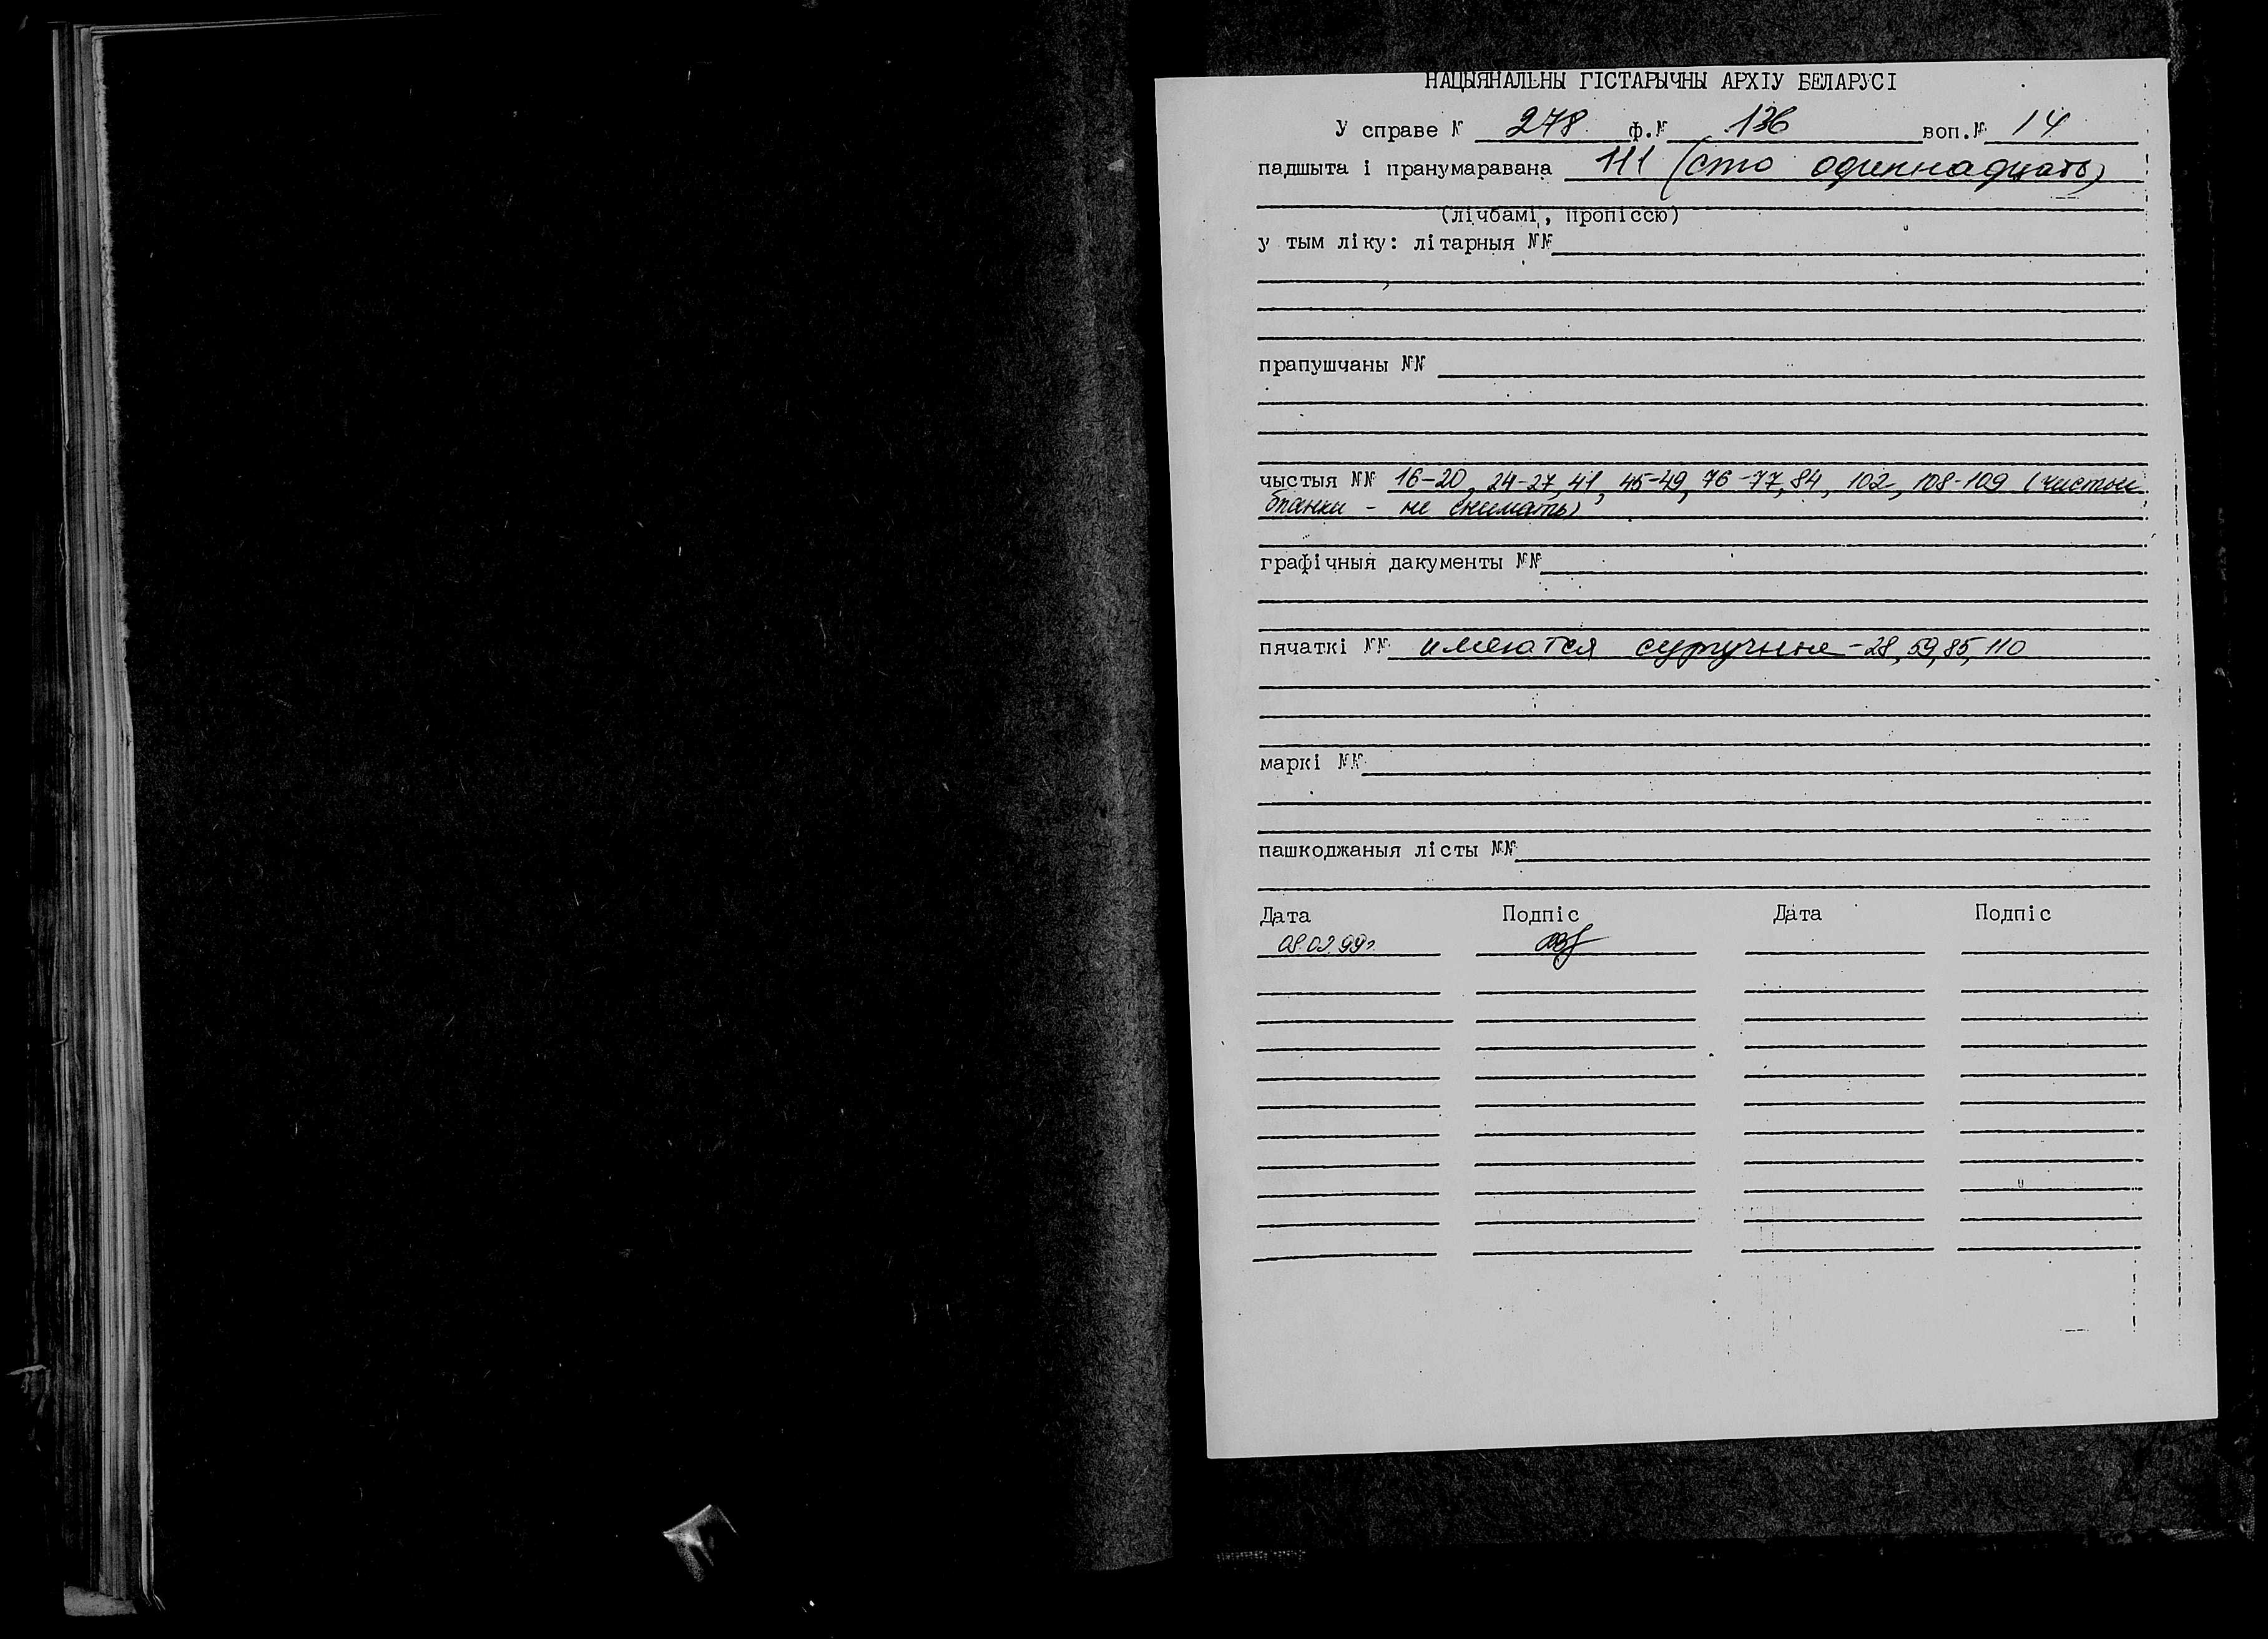 НАЦЫЯНАЛЬНЫ ГІСТАРЫЧНЫ АРХІУ БЕЛАРУСІ
У справе № 278 ф.№ 136 воп.№ 14
падшыта і пранумаравана 111 (сто одиннадцать)
(лічбамі, пропіссю)
у тым ліку: літарныя №№
прапушчаны №№
чыстыя №№ 16-20, 24-27, 41, 45-49, 76-77, 84, 102, 108-109 (чистые
бланки - не снимать)
графічныя дакументы №№
пячаткі №№ имеются сургучные - 28, 59, 85, 110
маркі №№
пашкоджаныя лісты №№
Дата Подпіс Дата Подпіс
08.02.99г.